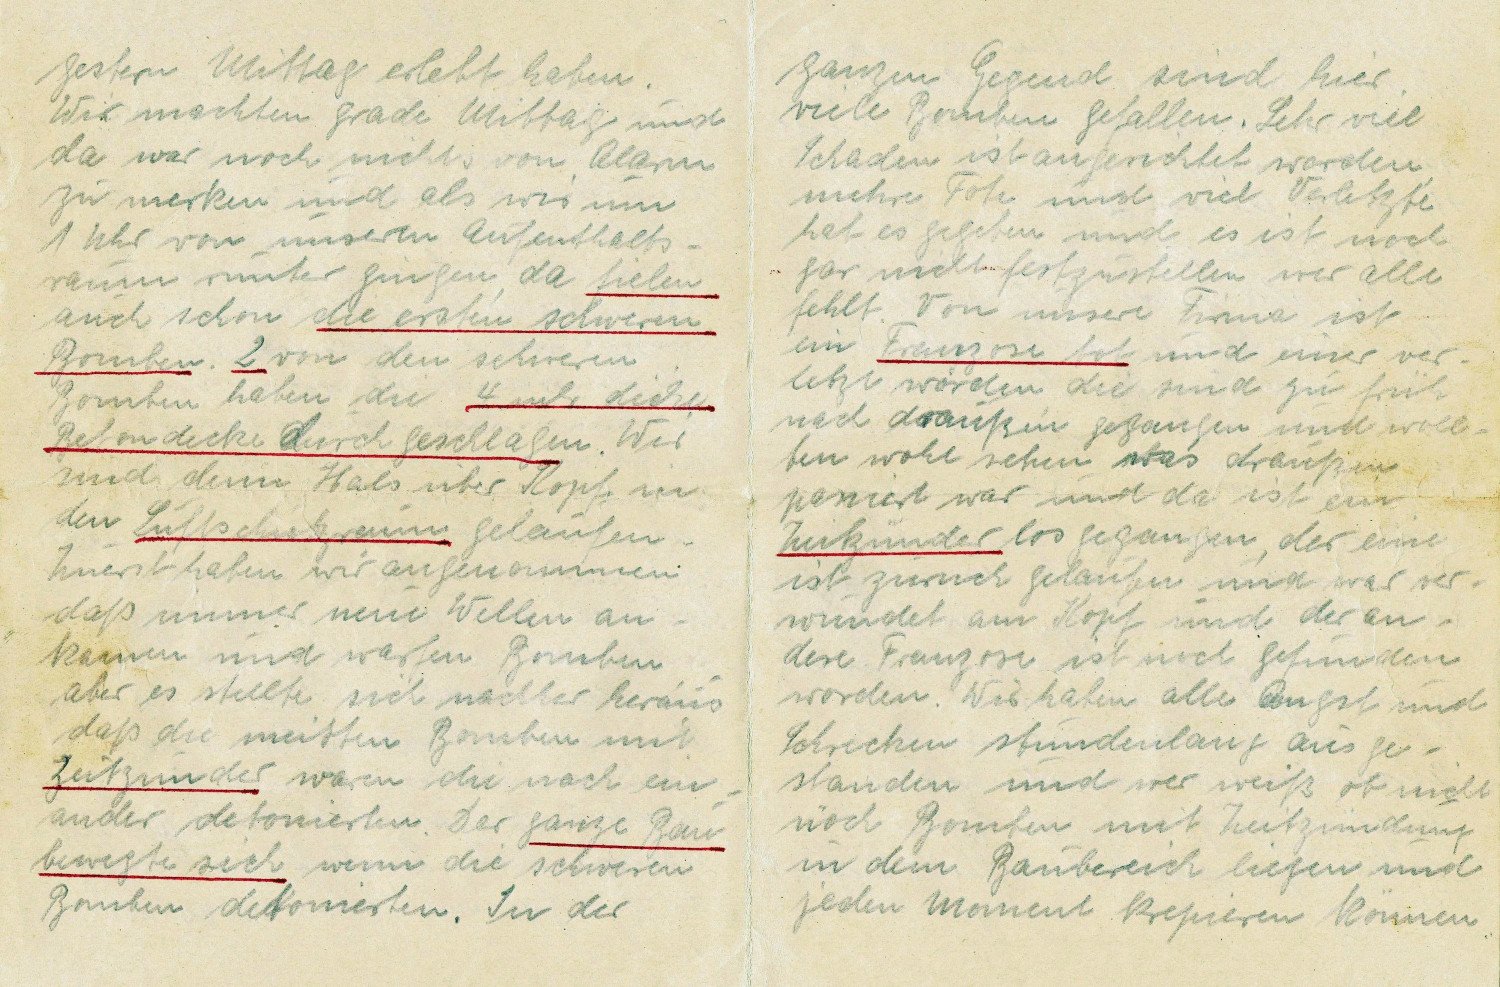 gestern Mittag erlebt haben.
Wir machten grade Mittag und
da war noch nichts von Alarm
zu merken und als wir um
1 Uhr von unseren Aufenthalts-
raum runter gingen, da fielen
auch schon die ersten schweren
Bomben. 2 von den schweren
Bomben haben die 4 mtr dicke
Betondecke durchgeschlagen. Wir
sind denn Hals über Kopf in
den Luftschutzraum gelaufen.
Zuerst haben wir angenommen
daß immer neue Wellen an-
kamen und warfen Bomben
aber es stellte sich nachher heraus
daß die meisten Bomben mit
Zeitzünder waren die nach ein-
ander detonierten. Der ganze Bau
bewegte sich wenn die schweren
Bomben detonierten. In der
ganzen Gegend sind hier
viele Bomben gefallen. Sehr viel
Schaden ist angerichtet worden,
mehre Tote und viel Verletzte
hat es gegeben und es ist noch
gar nicht festzustellen wer alle
fehlt. Von unsere Firma ist
ein Franzose tot und einer ver-
letzt worden die sind zu früh
nach draußen gegangen und woll-
ten wohl sehen was draußen
passiert war und da ist ein
Zeitzünder los gegangen, der eine
ist zurück gelaufen und war ver-
wundet am Kopf und der an-
dere Franzose ist noch gefunden
worden. Wir haben alle Angst und
Schrecken stundenlang ausge-
standen und wer weiß ob nicht
noch Bomben mit Zeitzündung
in dem Baubereich liegen und
jeden Moment krepieren können